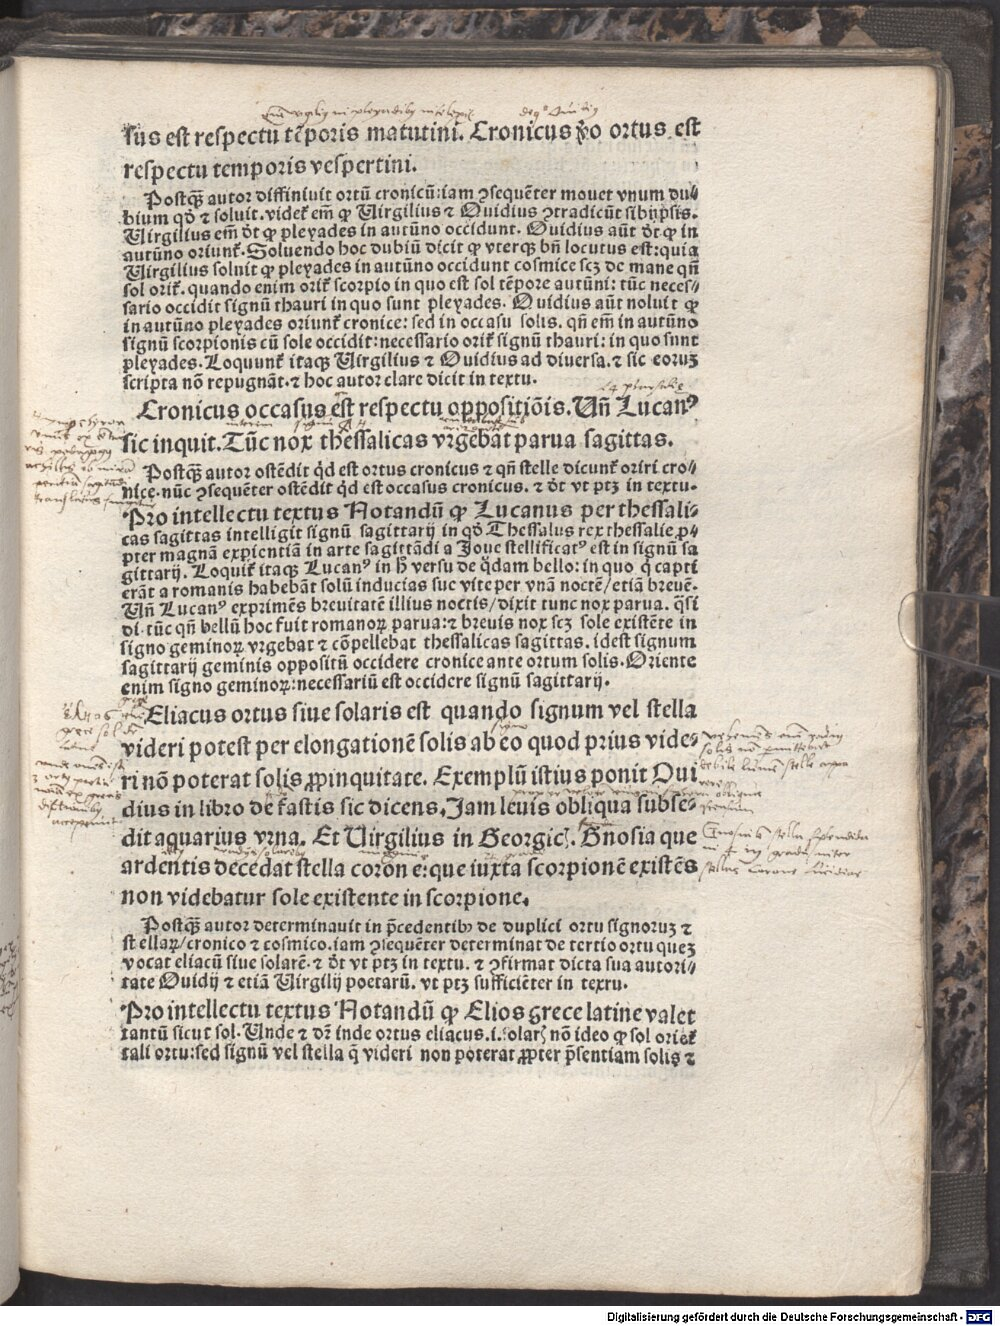 sus est respectu tēporis matutini. Cronicus ꝟo ortus est
respectu temporis vespertini.
Postꝙ̄ autor diffiniuit ortū cronicū: iam ꝯsequēter mouet vnum du⸗
bium qđ ⁊ soluit. videt̄ em̄ ꝙ Virgilius ⁊ Ouidius ꝯtradicūt sibijpsis.
Virgilius em̄ dt̄ ꝙ pleyades in autūno occidunt. Ouidius aūt dt̄ ꝙ in
autūno oriunt̄. Soluendo hoc dubiū dicit ꝙ vterqꝫ bn̄ locutus est: quia
Virgilius voluit ꝙ pleyades in autūno occidunt cosmice scꝫ de mane qn̄
sol orit̄. quando enim orit̄ scorpio in quo est sol tēpore autūni: tūc neces⸗
sario occidit signū thauri in quo sunt pleyades. Ouidius aūt voluit ꝙ
in autūno pleyades oriunt̄ cronice: sed in occasu solis. qn̄ em̄ in autūno
signū scorpionis cū sole occidit: necessario orit̄ signū thauri: in quo sunt
pleyades. Loquunt̄ itaqꝫ Virgilius ⁊ Ouidius ad diuersa. ⁊ sic eoruꝫ
scripta nō repugnāt. ⁊ hoc autor clare dicit in textu.
Cronicus occasus est respectu oppositiōis. Vn̄ Lucanꝰ
sic inquit. Tūc nox thessalicas vrgebat parua sagittas.
Postꝙ̄ autor ostēdit qd̄ est ortus cronicus ⁊ qn̄ stelle dicunt̄ oriri cro⸗
nice. nūc ꝯsequēter ostēdit qd̄ est occasus cronicus. ⁊ dt̄ vt ptꝫ in textu.
Pro intellectu textus Notandū ꝙ Lucanus per thessali⸗
cas sagittas intelligit signū sagittarij in qđ Thessalus rex thessalie ꝓ⸗
pter magnā expientiā in arte sagittādi a Joue stellificatꝰ est in signū sa
gittarij. Loquit̄ itaqꝫ Lucanꝰ in h̄ versu de q̄dam bello: in quo q̄ capti
erāt a romanis habebāt solū inducias sue vite per vnā noctē/ etiā breuē.
Vn̄ Lucanꝰ exprimēs breuitatē illius noctis/ dixit tunc nox parua. q̄si
di. tūc qn̄ bellū hoc fuit romanoꝝ parua: ⁊ breuis nox scꝫ sole existēte in
signo geminoꝝ vrgebat ⁊ cōpellebat thessalicas sagittas. idest signum
sagittarij geminis oppositū occidere cronice ante ortum solis. Oriente
enim signo geminoꝝ: necessariū est occidere signū sagittarij.
Eliacus ortus siue solaris est quando signum vel stella
videri potest per elongationē solis ab eo quod prius vide⸗
ri nō poterat solis ꝓpinquitate. Exemplū istius ponit Oui
dius in libro de fastis sic dicens. Jam leuis obliqua subse⸗
dit aquarius vrna. Et Virgilius in Georgicꝭ. Gnosia que
ardentis decedat stella coron e: que iuxta scorpionē existēs
non videbatur sole existente in scorpione.
Postꝙ̄ autor determinauit in p̄cedentibꝰ de duplici ortu signoruꝫ ⁊
stellaꝝ/ cronico ⁊ cosmico. iam ꝯsequēter determinat de tertio ortu queꝫ
vocat eliacū siue solarē. ⁊ dt̄ vt ptꝫ in textu. ⁊ ꝯfirmat dicta sua autori⸗
tate Ouidij ⁊ etiā Virgilij poetarū. vt ptꝫ sufficiēter in textu.
Pro intellectu textus Notandū ꝙ Elios grece latine valet
tantū sicut sol. Unde ⁊ dr̄ inde ortus eliacus. i. solarꝭ nō ideo ꝙ sol oriēt̄
tali ortu: sed signū vel stella q̄ videri non poterat ꝓpter p̄sentiam solis ⁊
Digitalisierung gefördert durch die Deutsche Forschungsgemeinschaft - DFG